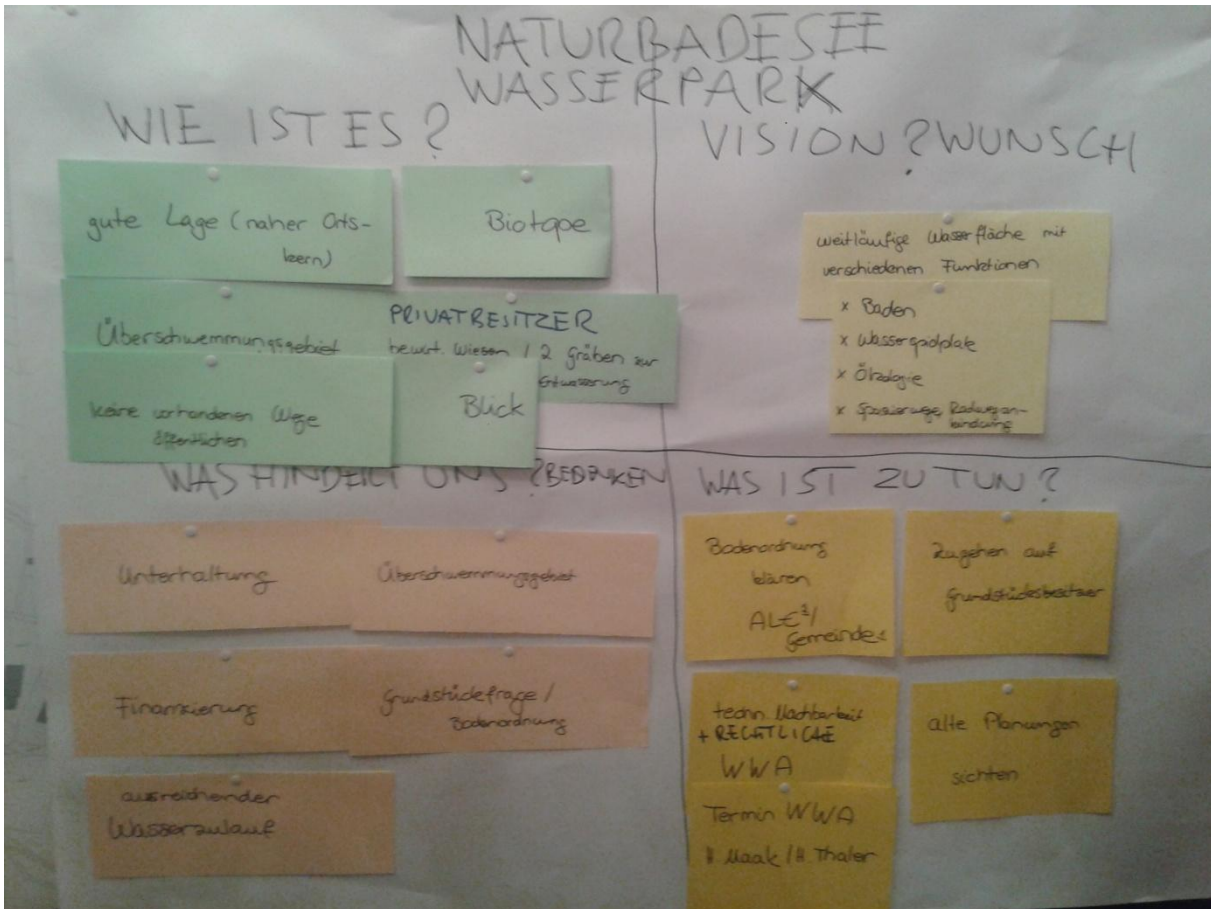 NATURBADESEE
WASSERPARK
WIE IST ES?
gute Lage (naher Orts-
kern)
Biotope
Überschwemmungsgebiet
PRIVATBESITZER
bewirt. Wiesen / 2 Gräben zur
Entwässerung
keine vorhandenen Wege
öffentlichen
Blick
VISION ? WUNSCH
weitläufige Wasserfläche mit
verschiedenen Funktionen
x Baden
x Wasserspielplatz
x Ökologie
x Spazierwege, Radwegan-
bindung
WAS HINDERT UNS ? BEDENKEN
Unterhaltung
Überschwemmungsgebiet
Finanzierung
Grundstücksfrage /
Bodenordnung
ausreichender
Wasserzulauf
WAS IST ZU TUN?
Bodenordnung
klären
ALE /
Gemeinde
Zugehen auf
Grundstücksbesitzer
techn. Machbarkeit
+ RECHTLICHE
WWA
alte Planungen
sichten
Termin WWA
H. Maak / H. Thaler